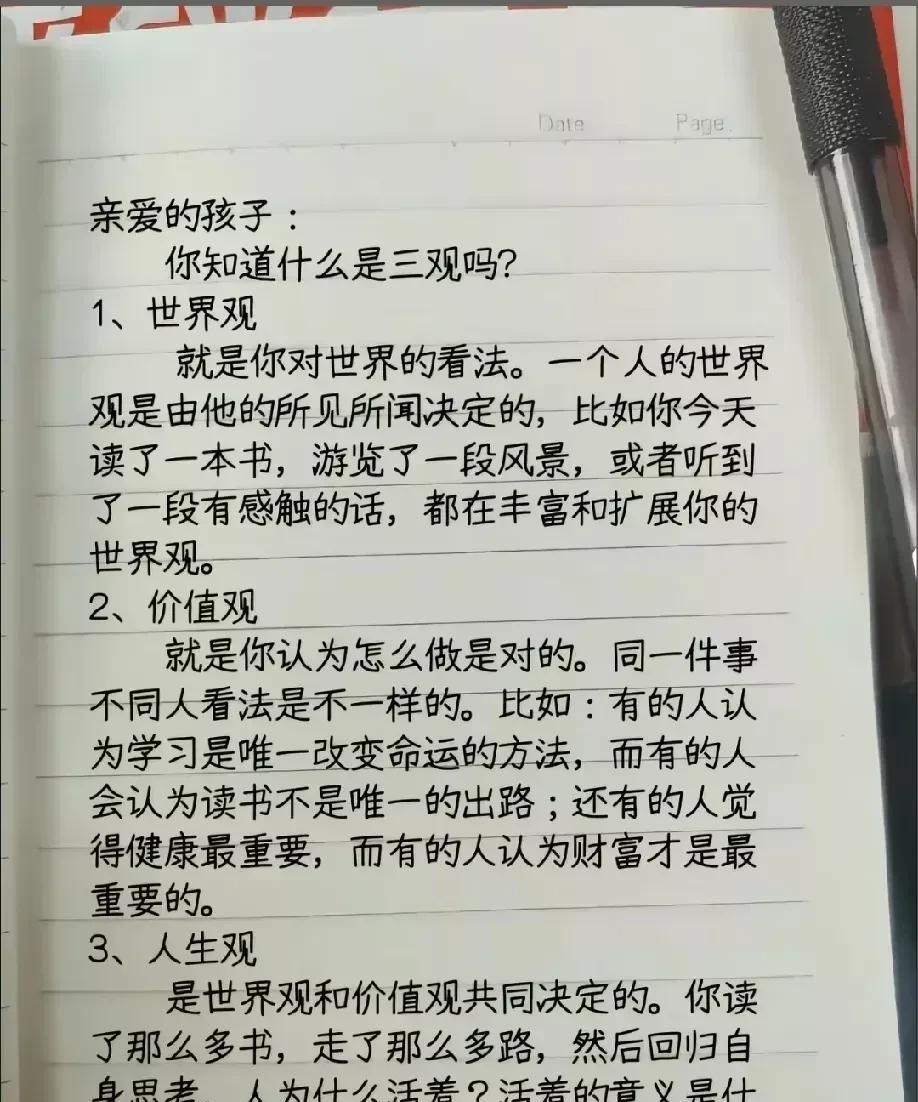 Date Page
亲爱的孩子：
你知道什么是三观吗？
1、世界观
就是你对世界的看法。一个人的世界
观是由他的所见所闻决定的，比如你今天
读了一本书，游览了一段风景，或者听到
了一段有感触的话，都在丰富和扩展你的
世界观。
2、价值观
就是你认为怎么做是对的。同一件事
不同人看法是不一样的。比如：有的人认
为学习是唯一改变命运的方法，而有的人
会认为读书不是唯一的出路；还有的人觉
得健康最重要，而有的人认为财富才是最
重要的。
3、人生观
是世界观和价值观共同决定的。你读
了那么多书，走了那么多路，然后回归自
身思考，人为什么活着？活着的意义是什